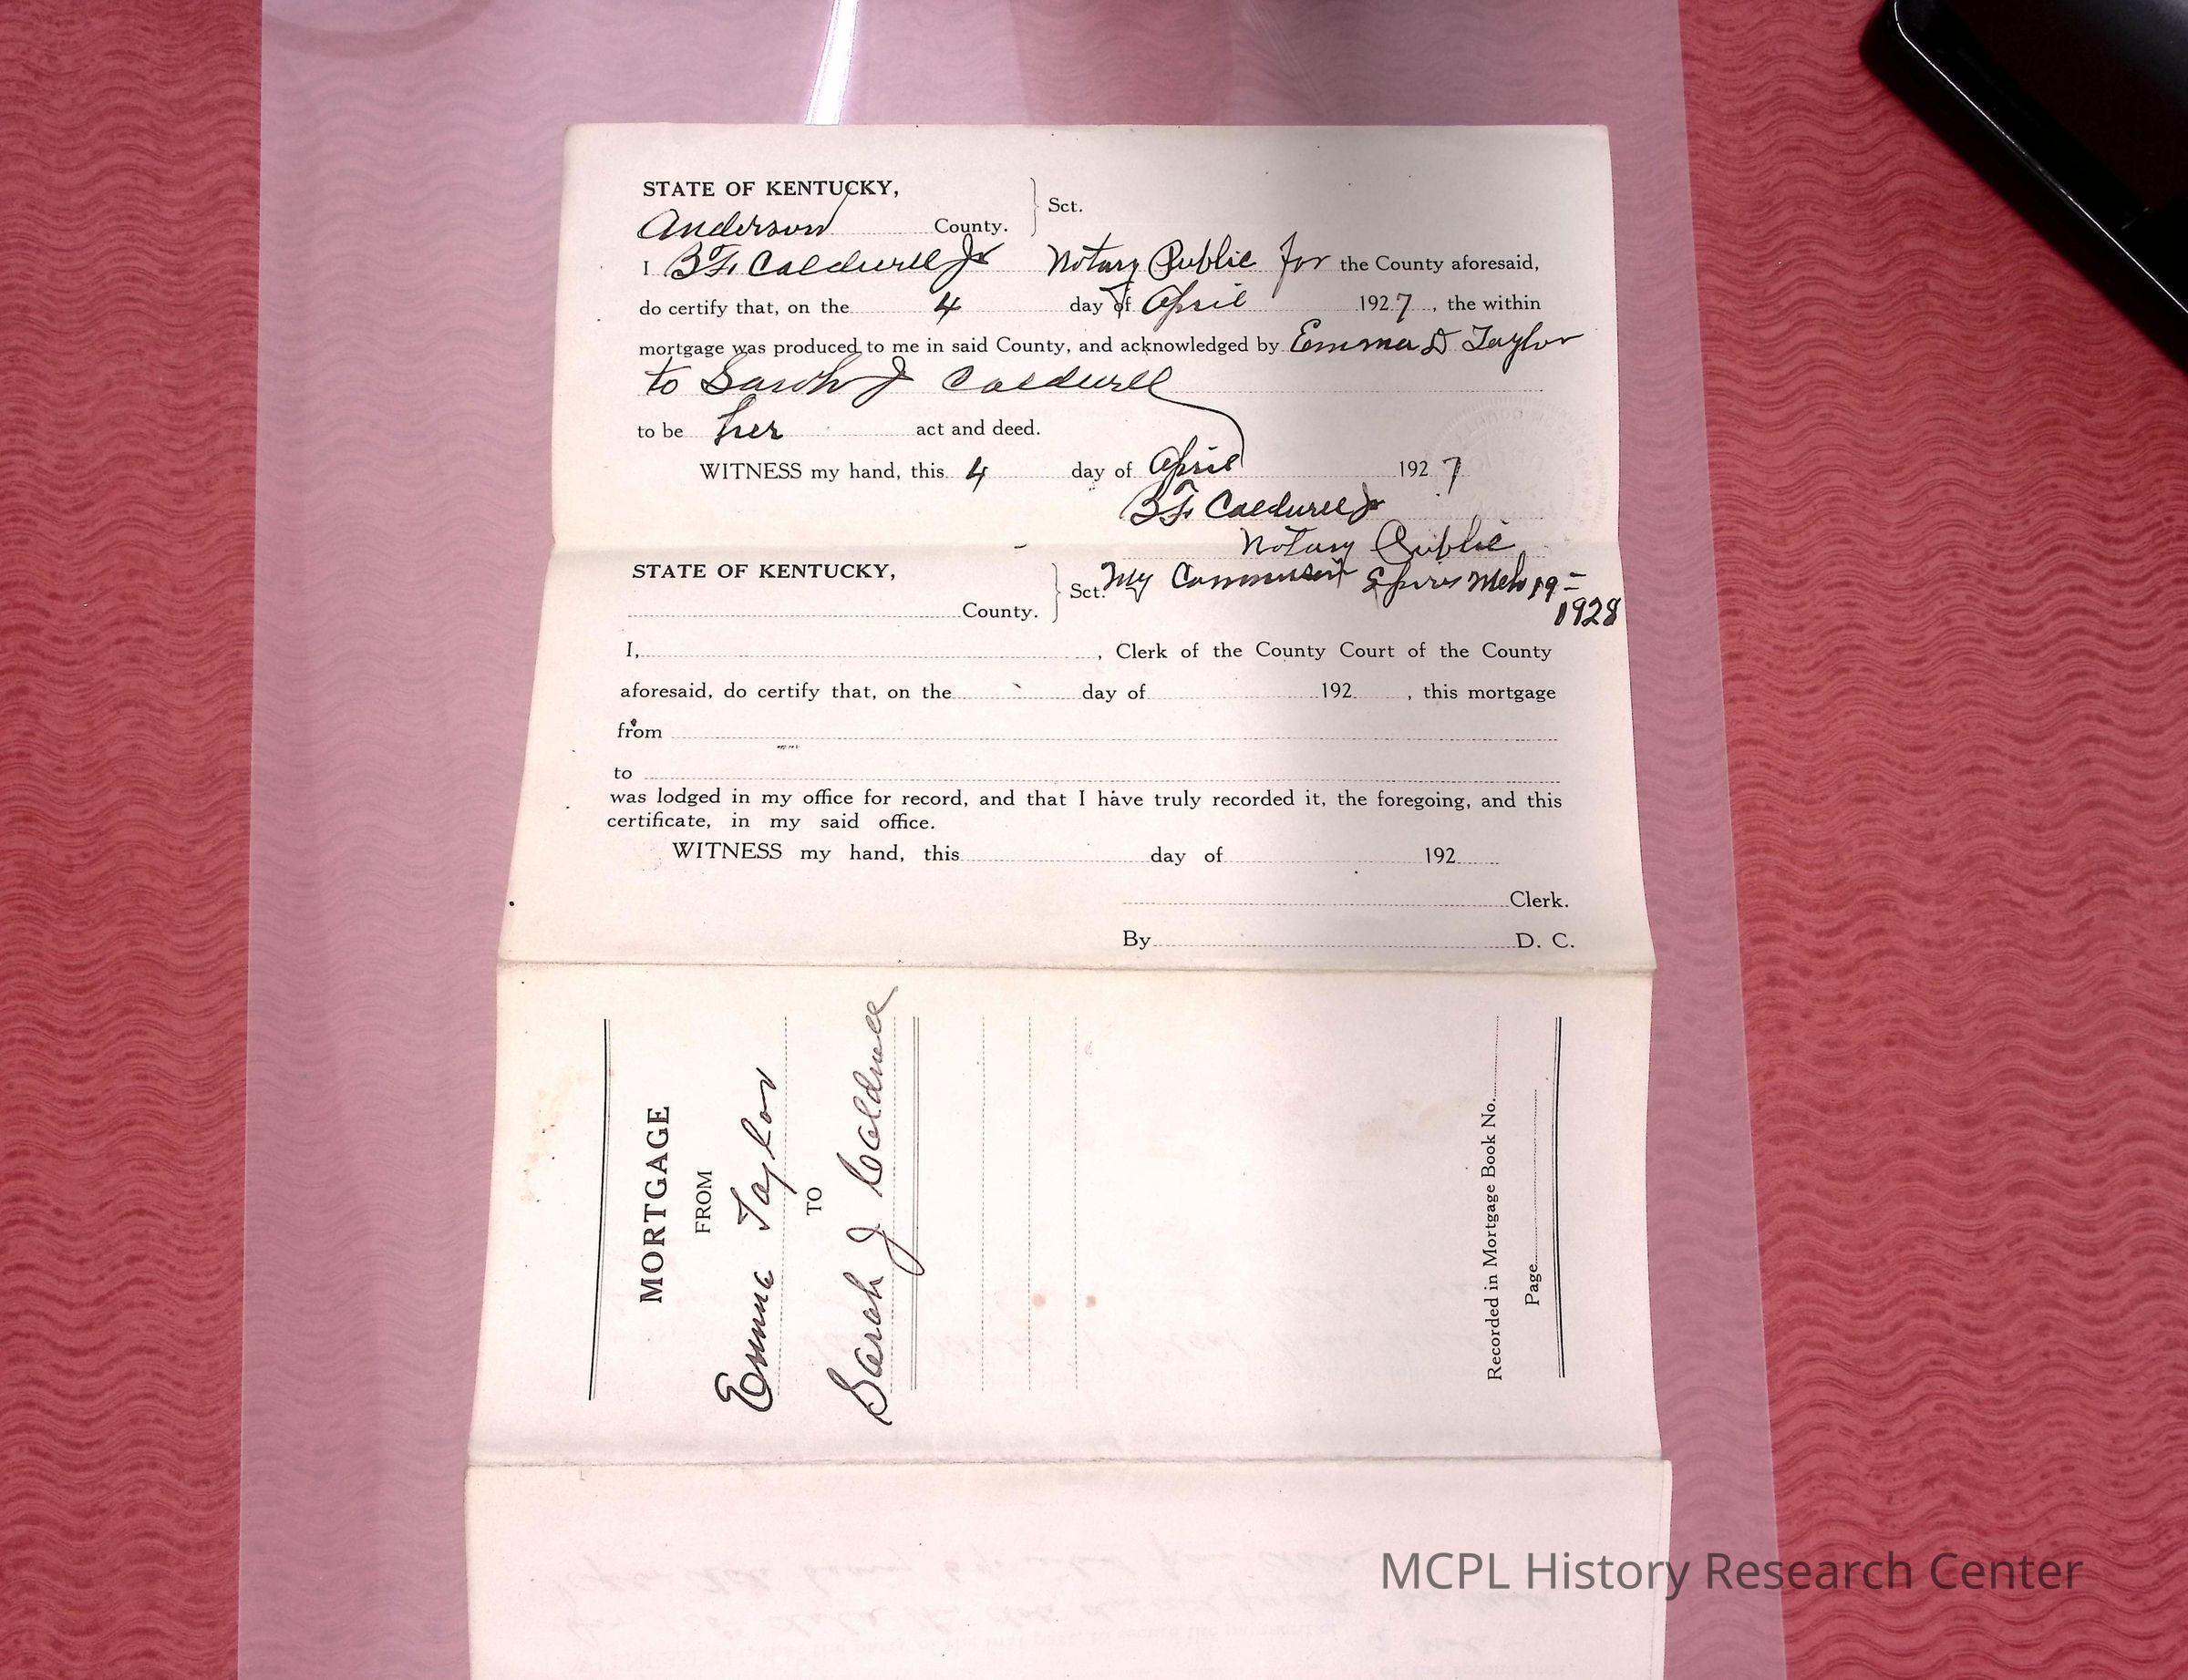 STATE OF KENTUCKY,
Anderson County. Sct.
I B.F. Caldwell Jr Notary Public for the County aforesaid,
do certify that, on the 4 day of April 1927, the within
mortgage was produced to me in said County, and acknowledged by Emma D Taylor
to Sarah J Caldwell
to be her act and deed.
WITNESS my hand, this 4 day of April 1927
B.F. Caldwell Jr
Notary Public
My Commission Expires Mch 19-
1928
STATE OF KENTUCKY,
County. Sct.
I, , Clerk of the County Court of the County
aforesaid, do certify that, on the day of 192 , this mortgage
from
to
was lodged in my office for record, and that I have truly recorded it, the foregoing, and this
certificate, in my said office.
WITNESS my hand, this day of 192
Clerk.
By D. C.
MORTGAGE
FROM
Emma Taylor
TO
Sarah J Caldwell
Recorded in Mortgage Book No.
Page
MCPL History Research Center